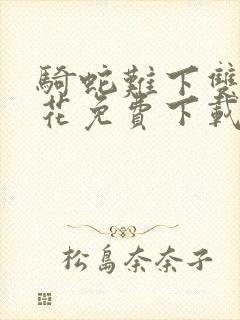 騎蛇難下雙
花免費下載
松島奈奈子